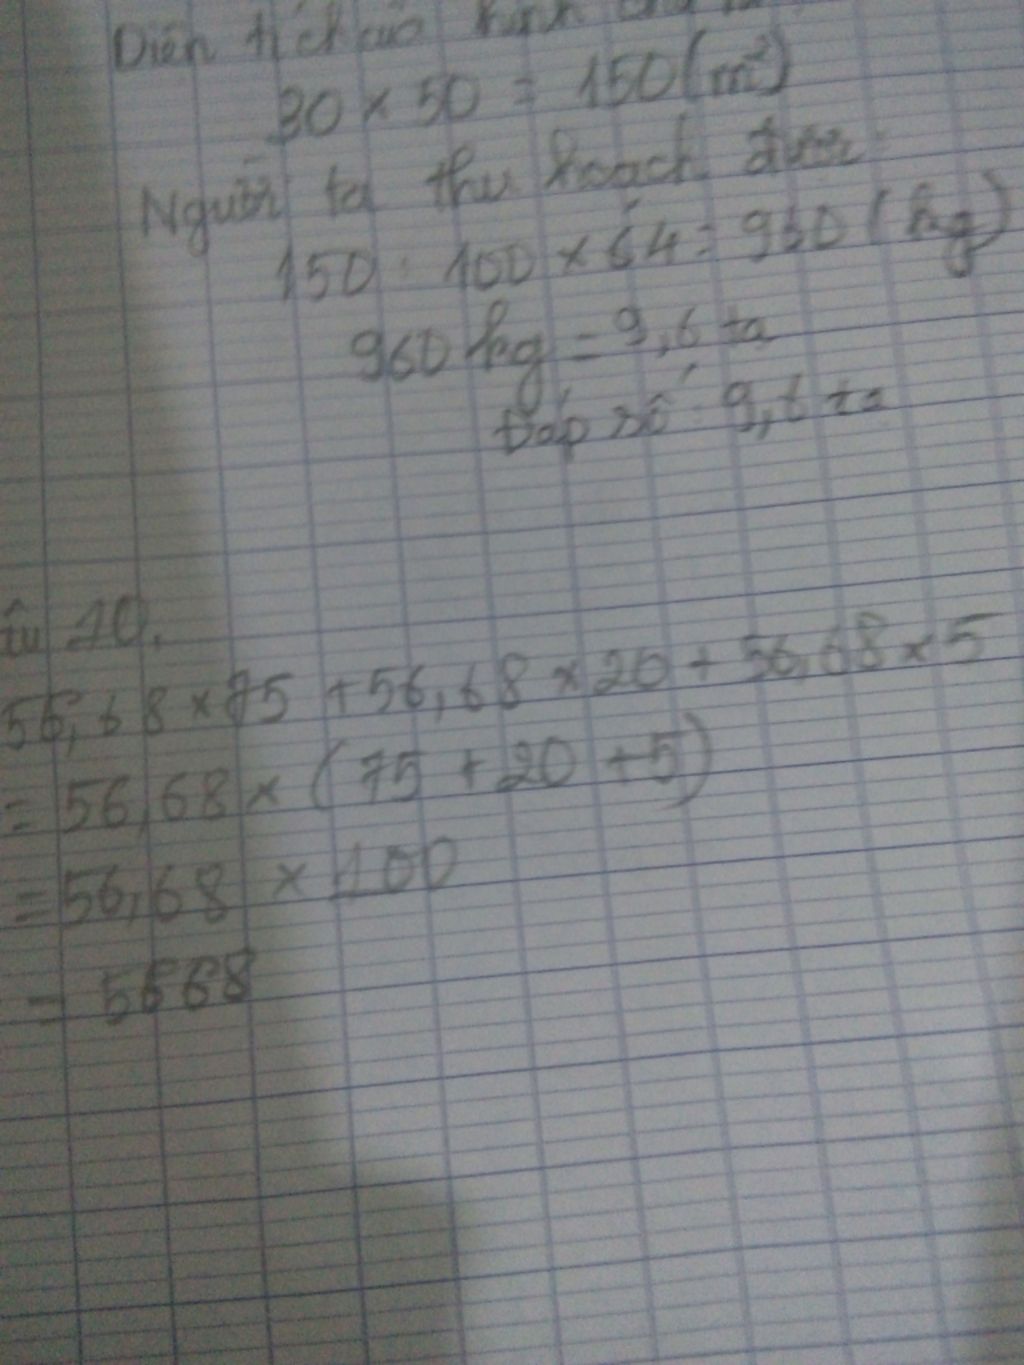 Diện tích của hình chữ
30 × 50 = 150 (m²)
Người ta thu hoạch được
150 : 100 × 64 = 960 (kg)
960 kg = 9,6 tạ
Đáp số : 9,6 tạ
10.
56,68 × 75 + 56,68 × 20 + 56,68 × 5
= 56,68 × ( 75 + 20 + 5)
= 56,68 × 100
= 5668